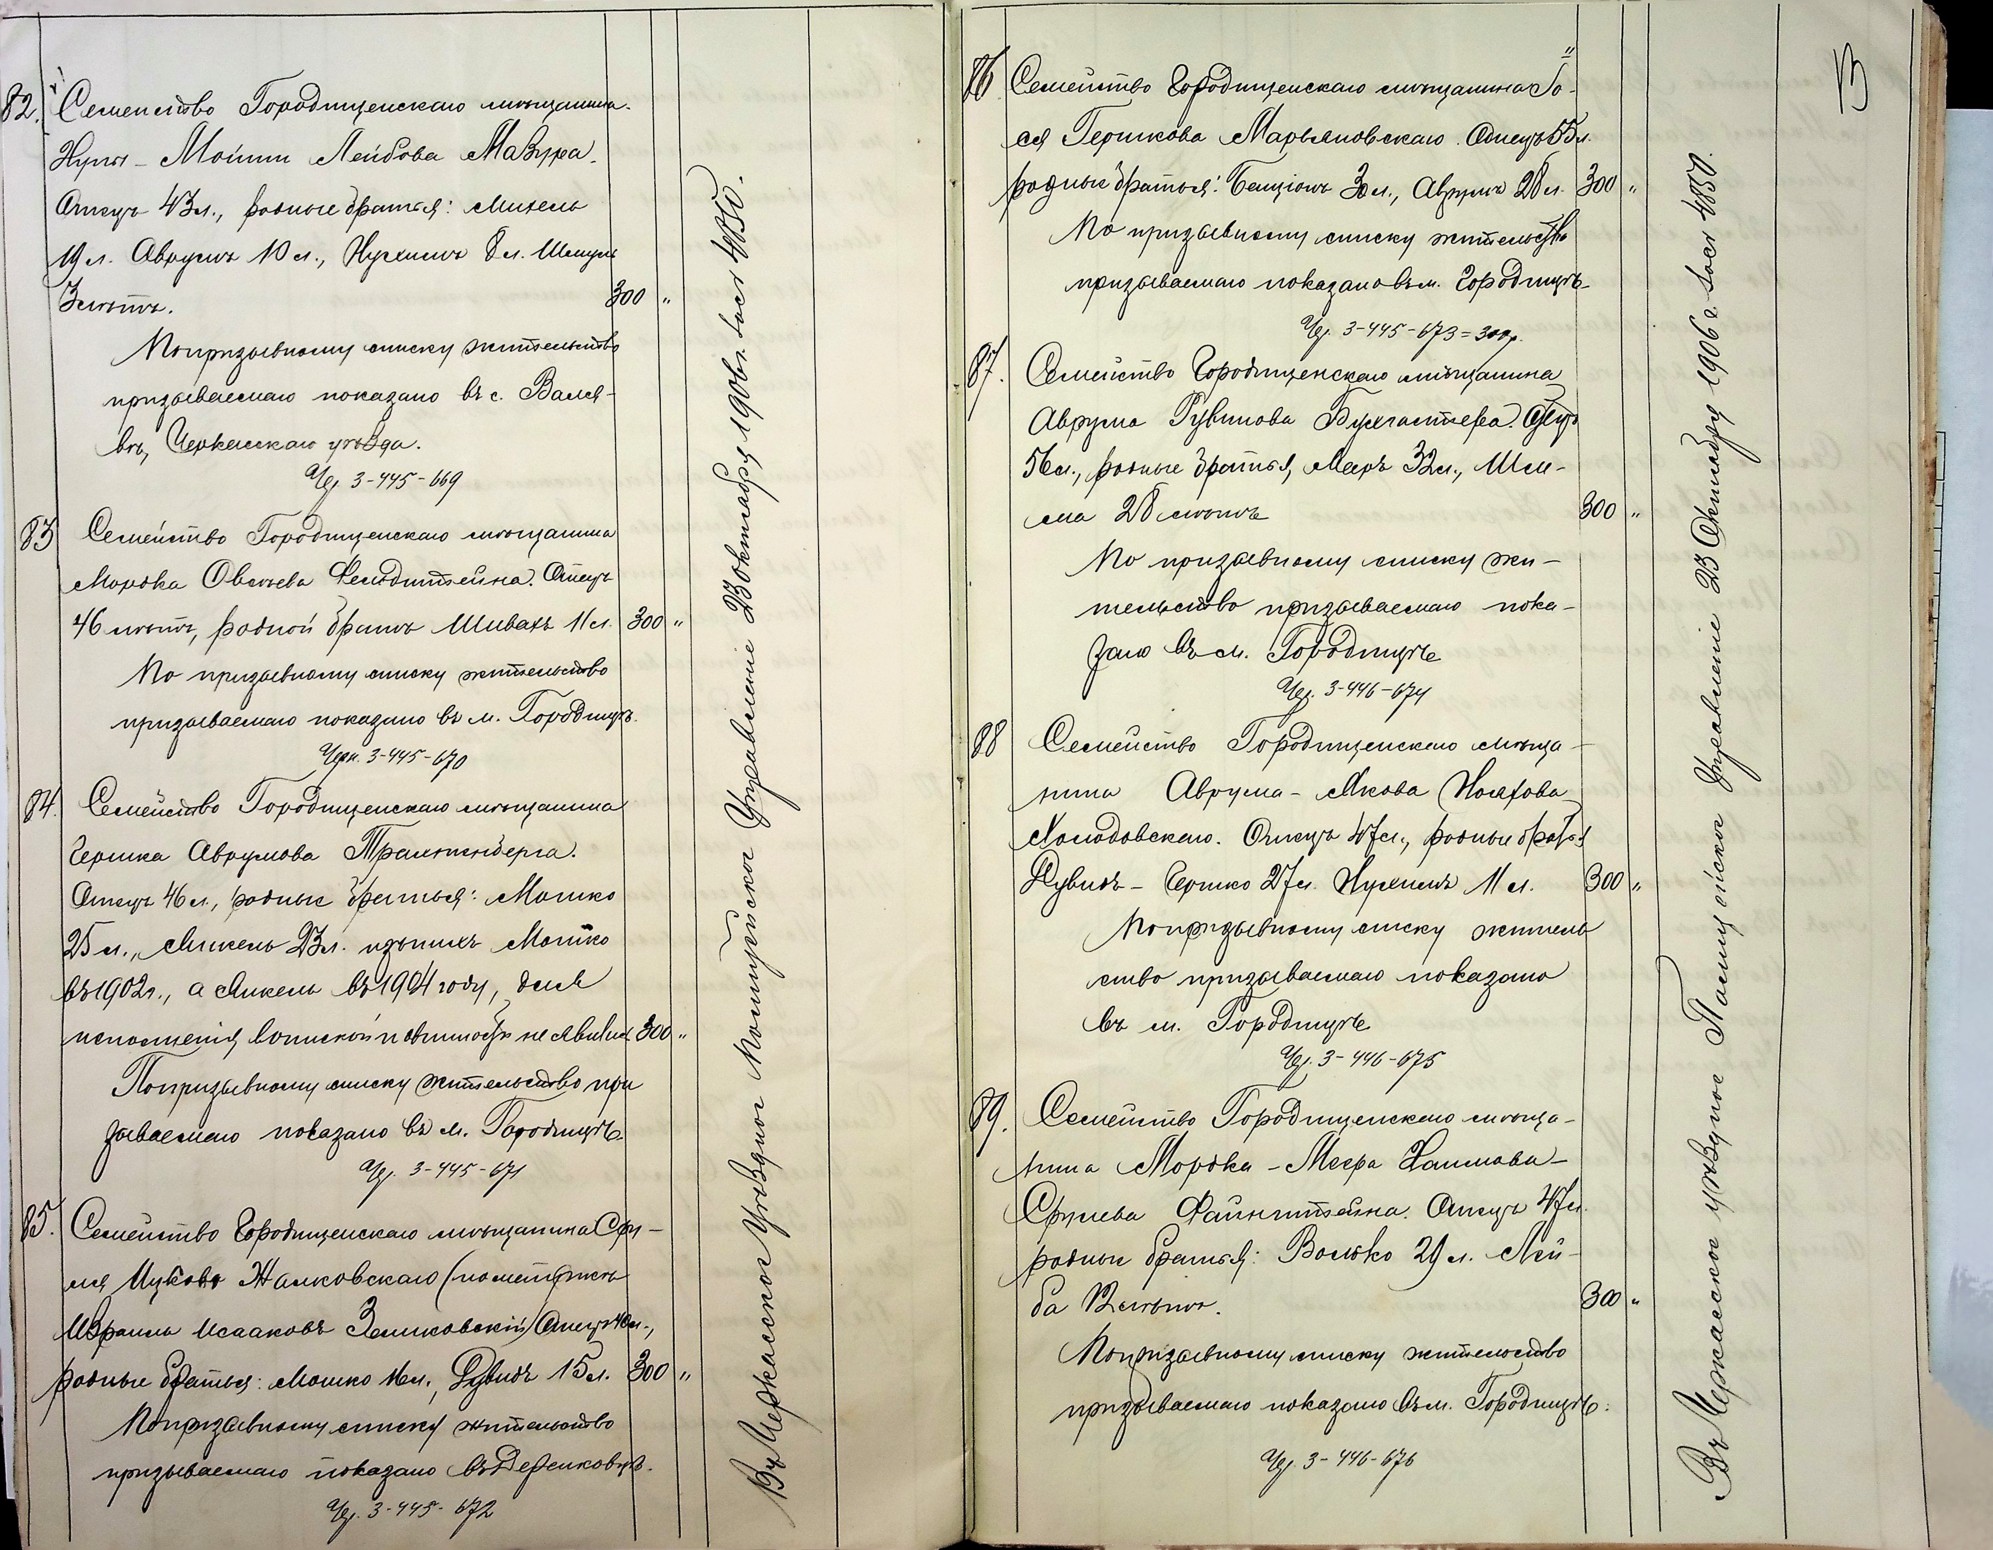 82. Семейство Городищенскаго мѣщанина
Нуты - Мойши Лейбова Мазура.
Отецъ 43 л., родные братья: Михель
19 л. Аврумъ 10 л., Нухимъ 8 л. Шмуль
3 лѣтъ. 300 „
По призывному списку жительство
призываемаго показано въ с. Валя-
вѣ, Черкасскаго уѣзда.
Чер. 3-445-669
83 Семейство Городищенскаго мѣщанина
Мордка Овсѣева Фельдштейна. Отецъ
46 лѣтъ, родной братъ Шивахъ 11 л. 300 „
По призывному списку жительство
призываемаго показано въ м. Городищѣ.
Черк. 3-445-670
84. Семейство Городищенскаго мѣщанина
Гершка Аврумова
Отецъ 46 л., родные братья: Мошко
25 л., Янкель 23 л. изъ нихъ Мошко
въ 1902 г., а Янкель въ 1904 году, для
исполненія воинской повинности не явились 300 „
По призывному списку жительство при
зываемаго показано въ м. Городищѣ.
Чер. 3-445-671
85. Семейство Городищенскаго мѣщанина Сру-
ля Ицкова Жалковскаго (по метрикѣ
Израиль Исааковъ Зеликовскій) Отецъ
родные братья: Мошко 16 л., Дувидъ 15 л. 300 „
По призывному списку жительство
призываемаго показано въ Деренковцѣ.
Чер. 3-445-672
Въ Черкасское Уѣздное Полицейское Управленіе 23 октября 1906 г. за № 4850.
13
86 Семейство Городищенскаго мѣщанина Іо-
ся Гершкова Марьяновскаго. Отецъ 55 л.
родные братья: Бенціонъ 30 л., Аврумъ 28 л. 300 „
По призывному списку жительство
призываемаго показано въ м. Городищѣ
Чер. 3-445-673=300р.
87. Семейство Городищенскаго мѣщанина
Аврума Рувинова Бухгастера. Отецъ
56 л., родные братья, Мееръ 32 л., Шле-
ма 28 лѣтъ 300 „
По призывному списку жи-
тельство призываемаго пока-
зано въ м. Городищѣ
Чер. 3-446-674
88 Семейство Городищенскаго мѣща-
нина Аврума - Якова Ноахова
Холодовскаго. Отецъ 47 л., родные братья
Дувидъ - Гершко 27 л. Нухимъ 11 л. 300 „
По призывному списку житель
ство призываемаго показано
въ м. Городищѣ
Чер. 3-446-675
89. Семейство Городищенскаго мѣща-
нина Мордка - Меера Хаимова-
Срулева Файнштейна. Отецъ 47 л.
родные братья: Волько 29 л. Лей-
ба 12 лѣтъ. 300 „
По призывному списку жительство
призываемаго показано въ м. Городищѣ.
Чер. 3-446-676
Въ Черкасское уѣздное Полицейское Управленіе 23 Октября 1906 г. за № 4850.